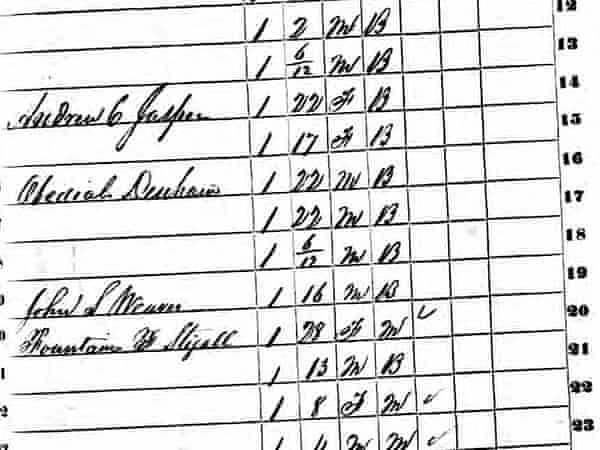 12
1 2 M B
13
1 6/12 M B
14
Andrew C Jasper 1 22 F B
15
1 17 F B
16
Obediah Denham 1 22 M B
17
1 22 M B
18
1 6/12 M B
19
John S Weaver 1 16 M B
20
Fountain F Stigall 1 28 F M ✓
21
1 13 M B
22
1 8 F M ✓
23
1 4 M M ✓